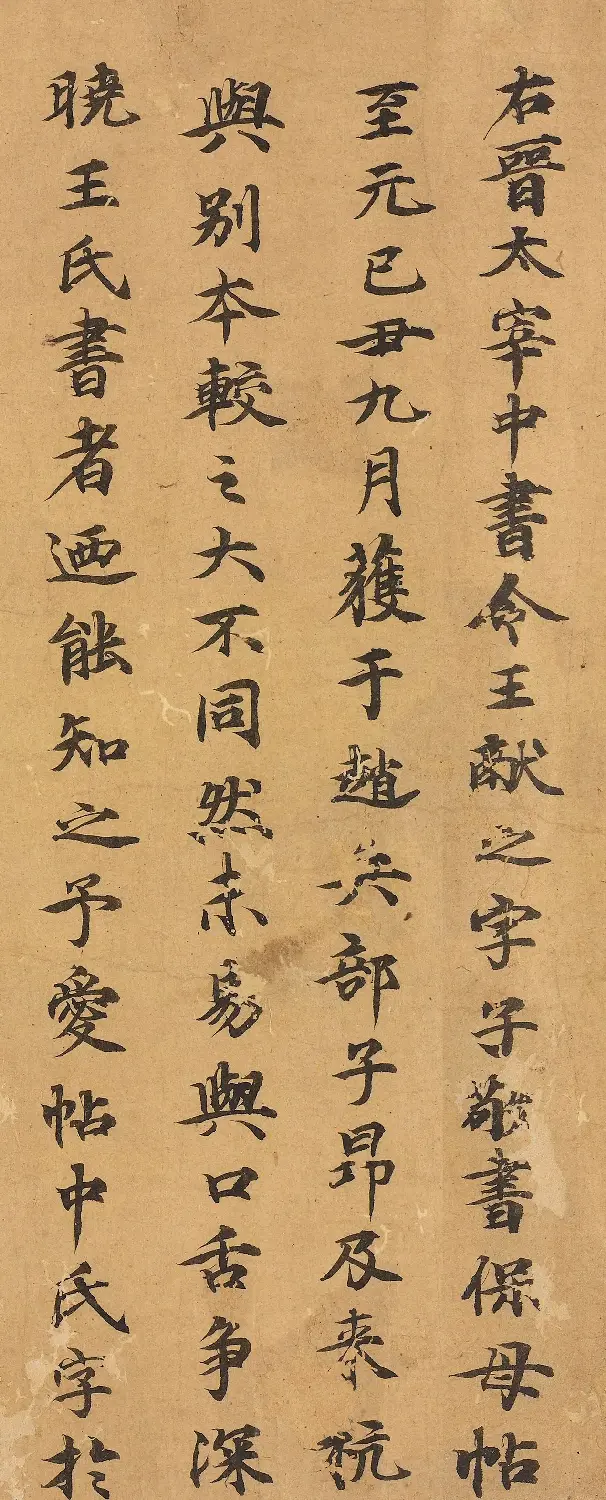 右晉太宰中書令王献之字子敬書保母帖
至元己丑九月獲于趙兵部子昂及来杭
與別本較之大不同然未易與口舌争深
曉王氏書者迺能知之予愛帖中氏字於